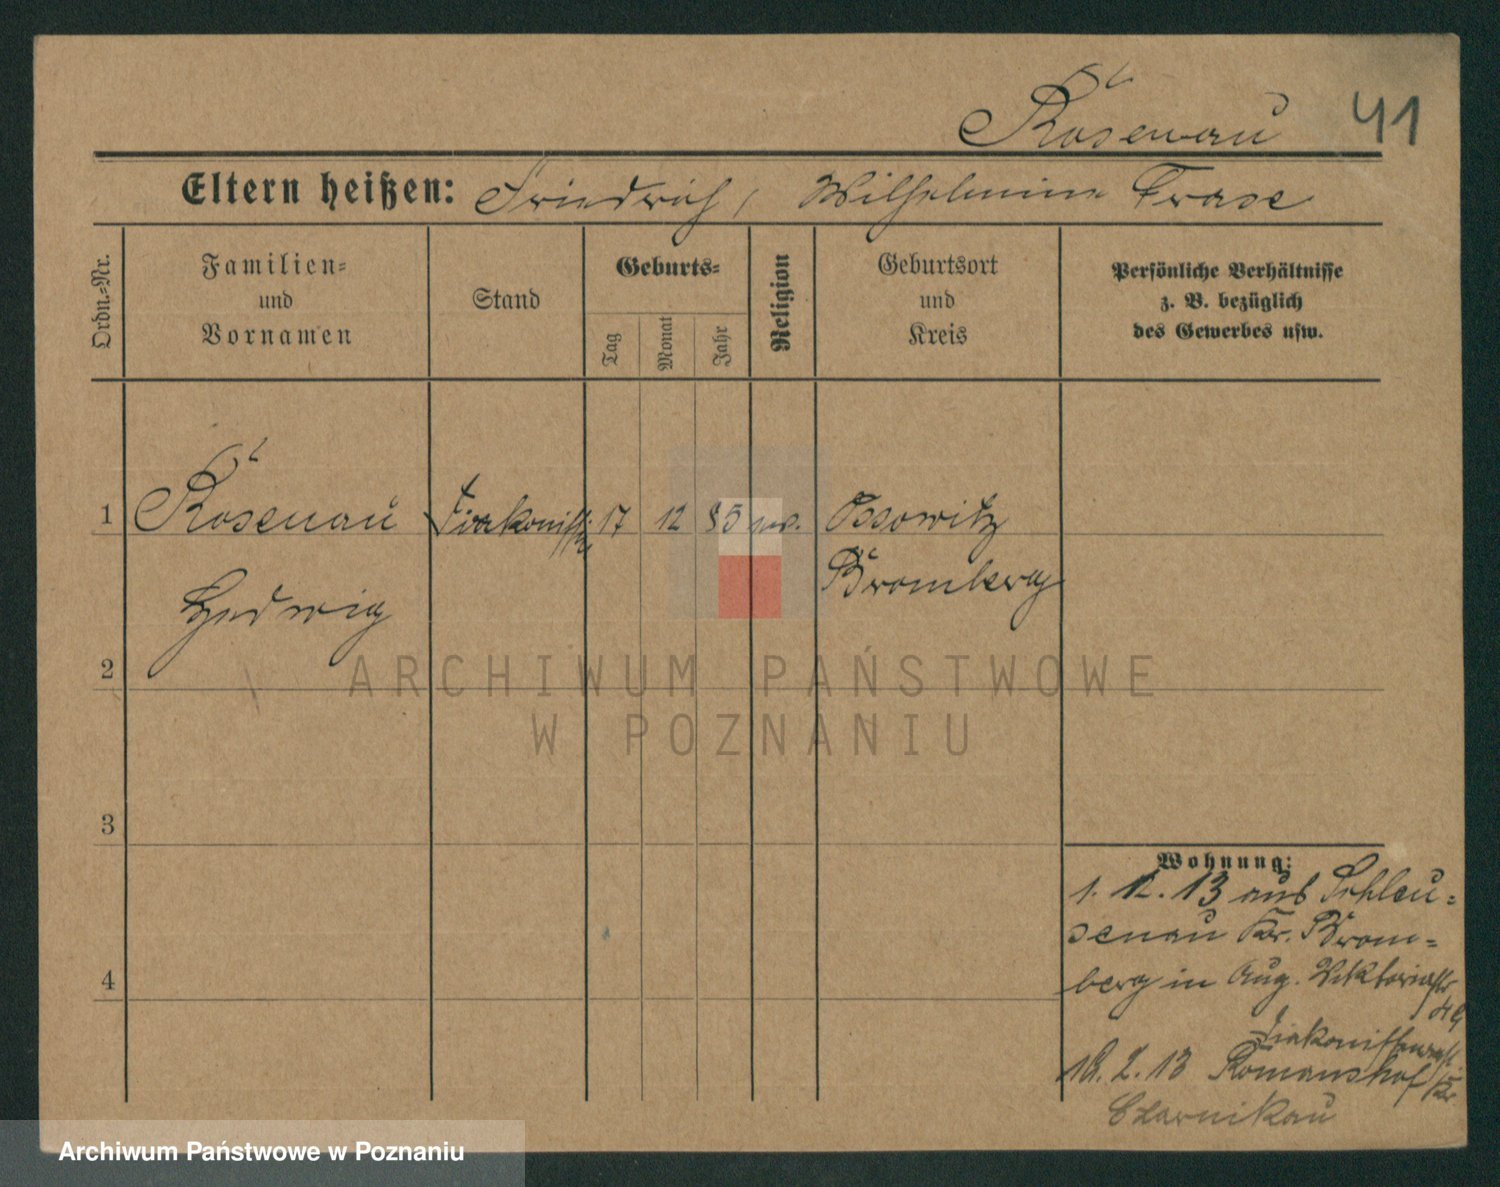 Rosenau 41
Eltern heißen: Friedrich, Wilhelmine Frase
Ordn.-Nr.
Familien-
und
Vornamen
Stand
Geburts-
Tag
Monat
Jahr
Religion
Geburtsort
und
Kreis
Persönliche Verhältnisse
z. B. bezüglich
des Gewerbes usw.
1 Rosenau Diakonissin 17 12 85 ev. Ossowitz
Bromberg
Hedwig
2
3
4
Wohnung:
1. 12. 13 aus Schleu-
senau Kr. Brom-
berg in Aug. Viktoriastr
Diakonissen
2. 13 Romanshof Kr.
Czarnikau
ARCHIWUM PAŃSTWOWE
W POZNANIU
Archiwum Państwowe w Poznaniu